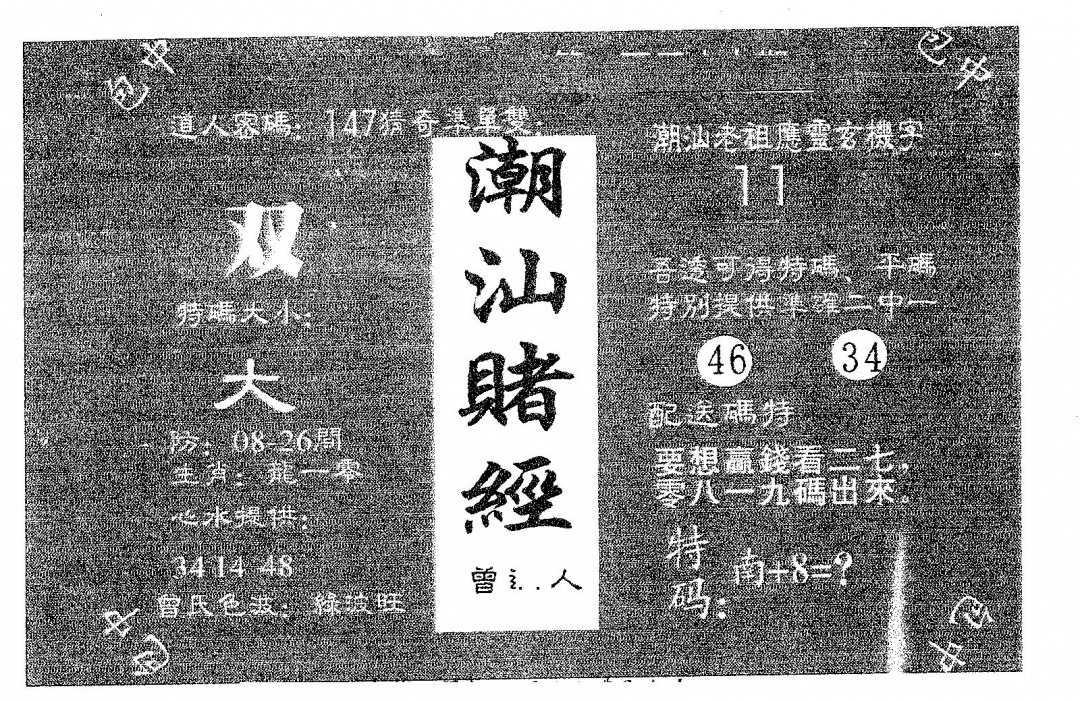 包中
包中
道人密碼：147猜奇準單雙：
双
特碼大小：
大
防：08-26開
生肖：龍一零
心水提供：
34 14 48
曾氏色波：綠波旺
潮汕賭經
曾 人
潮汕老祖應靈玄機字
11
吾透可得特碼、平碼
特別提供準確二中一
46 34
配送碼特
要想贏錢看二七，
零八一九碼出來。
特码：南+8=?
包中
包中